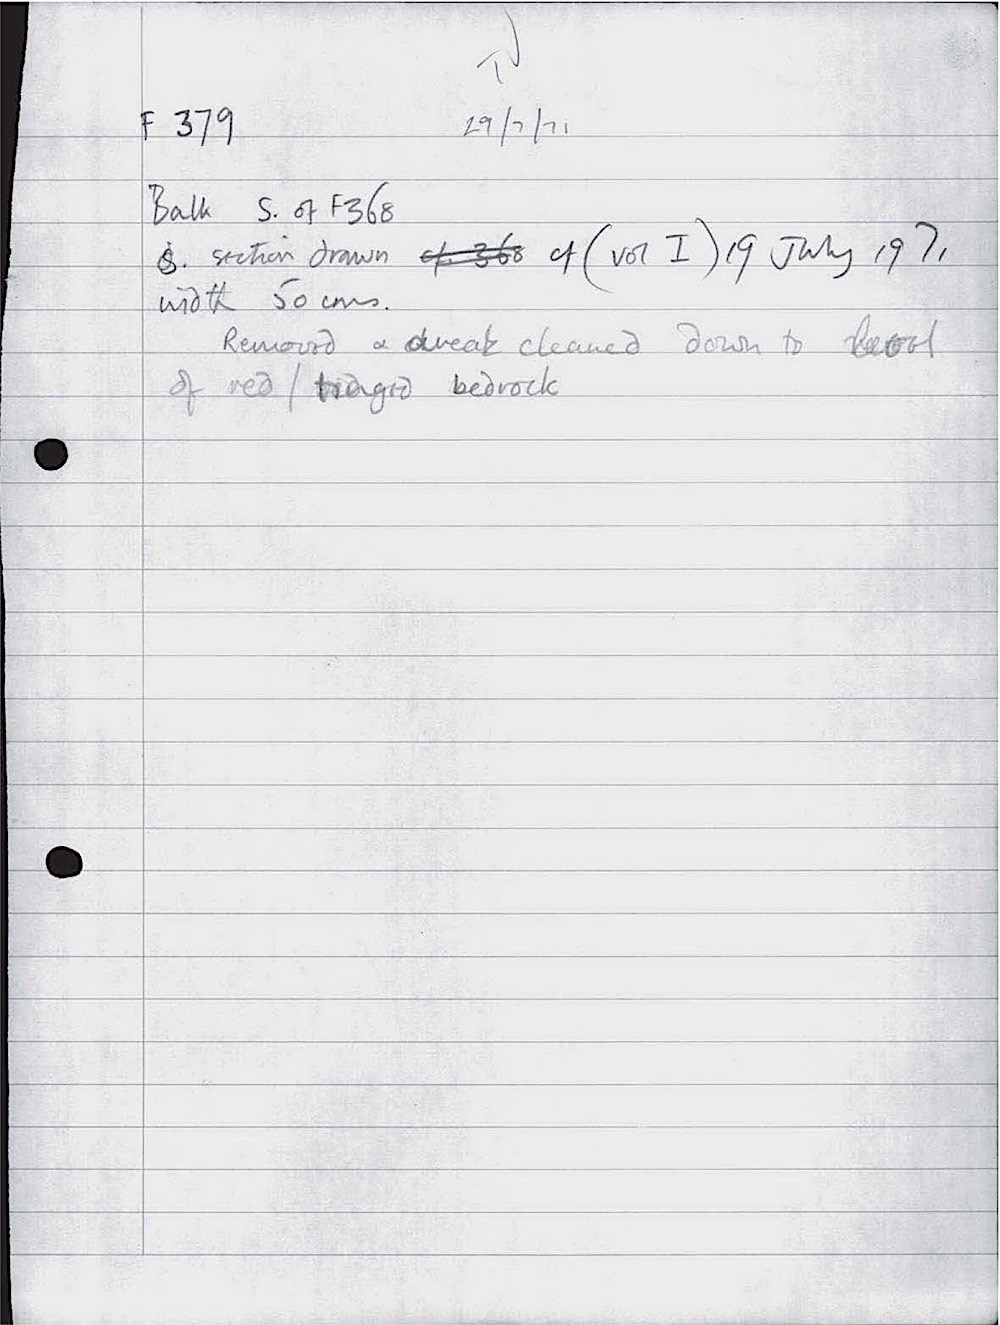 F 379 29/7/71
Balk S. of F368
S. section drawn cf. 368 cf (vol I) 19 July 1971
width 50 cms.
Removed & area cleaned down to level
of red / tinged bedrock